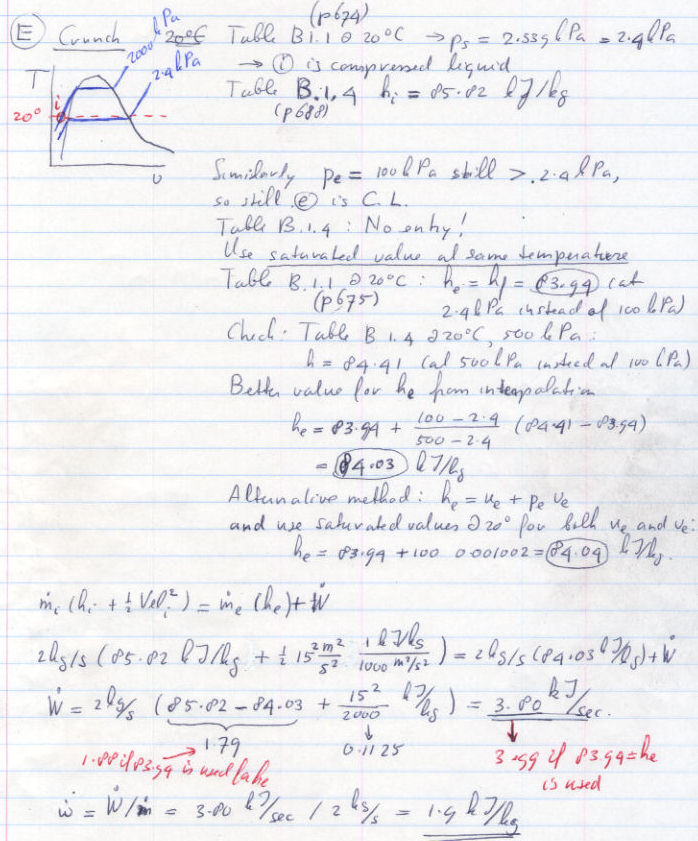 (p674)
(E) Crunch 20°C Table B1.1 @ 20°C → ps = 2.339 kPa = 2.4 kPa
→ (i) is compressed liquid
Table B.1.4 hi = 85.82 kJ/kg
(p688)
2000 kPa
2.4 kPa
T
i
20°
v
Similarly pe = 100 kPa still > 2.4 kPa,
so still (e) is C.L.
Table B.1.4 : No entry!
Use saturated value at same temperature
Table B.1.1 @ 20°C : he = hf = 83.94 (at
(p675) 2.4 kPa instead of 100 kPa)
Check: Table B 1.4 @ 20°C, 500 kPa :
h = 84.41 (at 500 kPa instead of 100 kPa)
Better value for he from interpolation
he = 83.94 + (100 - 2.4)/(500 - 2.4) (84.41 - 83.94)
= 84.03 kJ/kg
Alternative method: he = ue + pe ve
and use saturated values @ 20° for both ue and ve:
he = 83.94 + 100 0.001002 = 84.04 kJ/kg.
ṁi (hi + ½ Vel i²) = ṁe (he) + Ẇ
2 kg/s (85.82 kJ/kg + ½ 15² m²/s² 1 kJ/kg / 1000 m²/s²) = 2 kg/s (84.03 kJ/kg) + Ẇ
Ẇ = 2 kg/s (85.82 - 84.03 + 15²/2000 kJ/kg) = 3.80 kJ/sec.
1.79 0.1125
1.88 if 83.94 is used for he
3.99 if 83.94 = he
is used
ẇ = Ẇ/ṁ = 3.80 kJ/sec / 2 kg/s = 1.9 kJ/kg